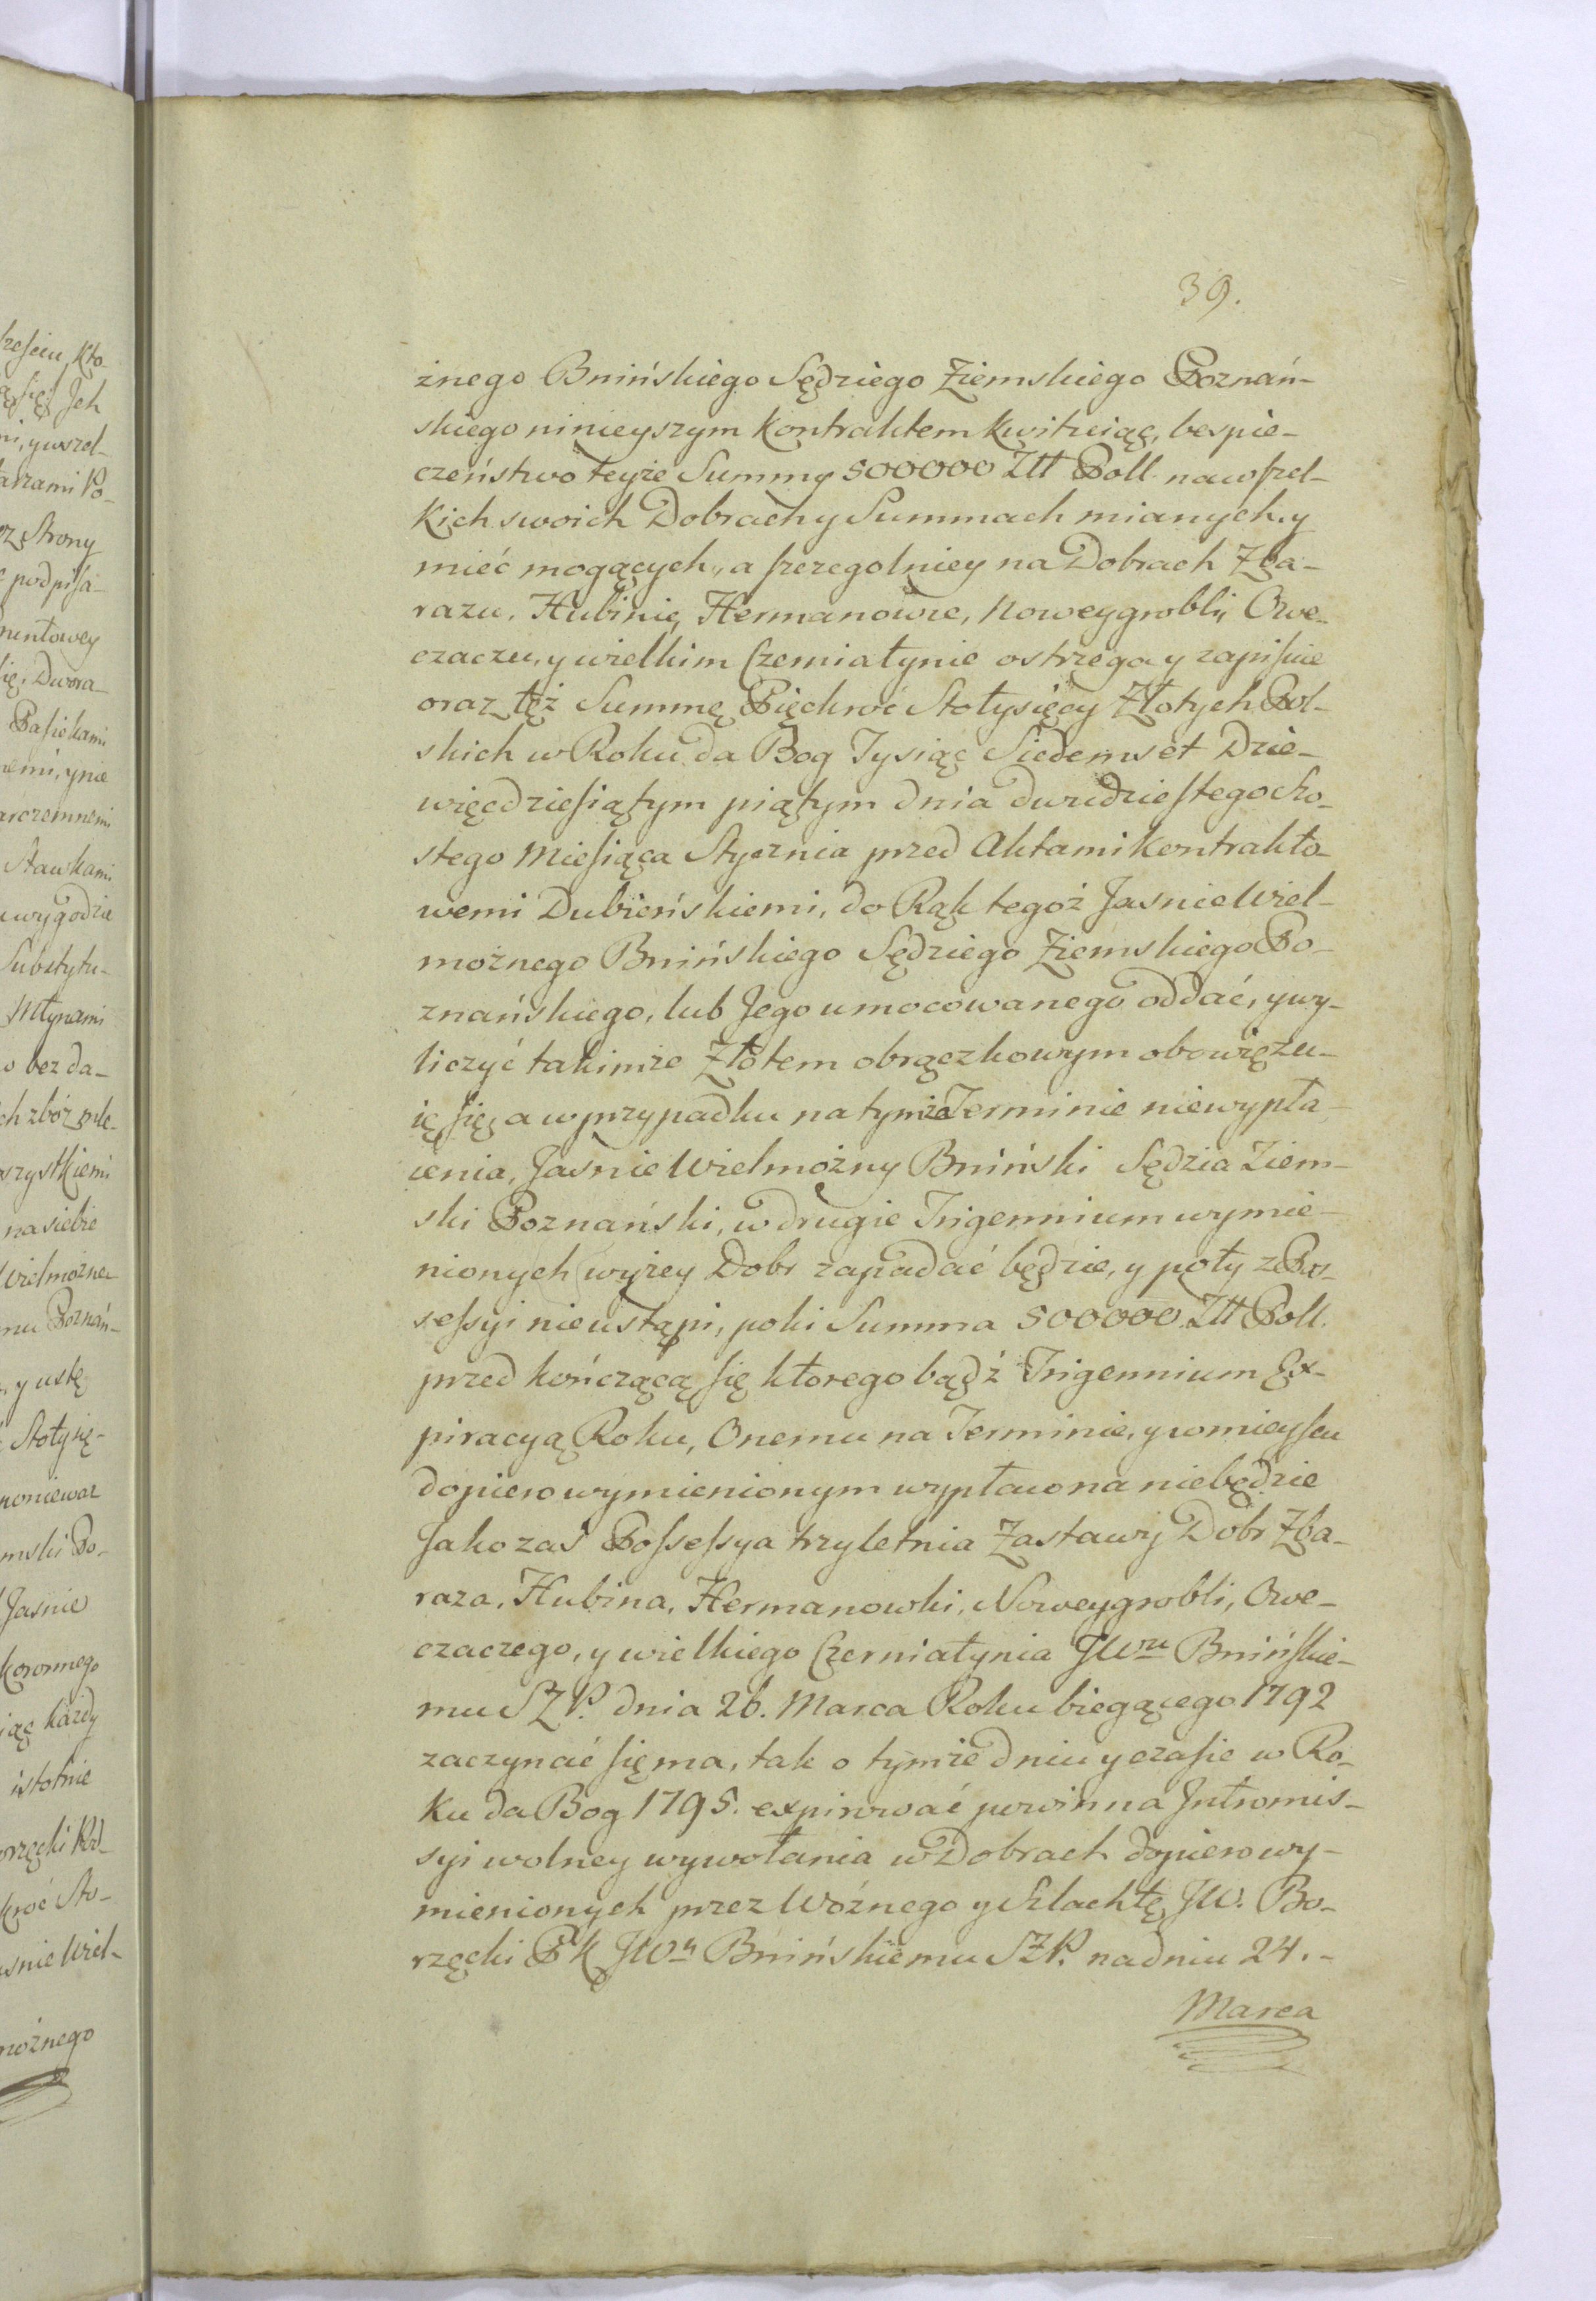 39.
żnego Bnińskiego Sędziego Ziemskiego Poznań-
skiego ninieyszym Kontraktem kwituiąc, bespie-
czeństwo teyże Summy 500000 Złł Poll. na wszel-
kich swoich Dobrach y Summach mianych, y
mieć mogących, a szczegolniey na Dobrach Zba-
razu, Hubinie, Hermanowce, Noweygrobli, Owe-
czaczu, y wielkim Czerniatynie ostrzega y zapisuie
oraz też Summę Pięckroć Stotysięcy Złotych Pol-
skich w Roku da Bog Tysiąc Siedemset Dzie-
więcdziesiątym piątym dnia dwudziestego szo-
stego Miesiąca Stycznia przed Aktami Kontrakto-
wemi Dubieńskiemi, do Rąk tegoż Jasnie Wiel-
możnego Bnińskiego Sędziego Ziemskiego Po-
znańskiego, lub Jego umocowanego oddać, y wy-
liczyć takimże Złotem obrączkowym obowięzu-
ię się, a w przypadku na tymże Terminie niewypła-
cenia, Jasnie Wielmożny Bniński Sędzia Ziem-
ski Poznański, w drugie Trigennium wymie-
nionych wyżey Dobr zapadać będzie, y poty z Pos-
sessyi nieustąpi, poki Summa 500000. Złł Poll.
przed kończącą się ktorego bądź Trigennium Ex-
piracyą Roku, Onemu na Terminie, y w mieyscu
dopiero wymienionym wypłacona niebędzie
Jako zaś Possessya trzyletnia Zastawy Dobr Zba-
raza, Hubina, Hermanowki, Noweygrobli, Owe-
czaczego, y wielkiego Czerniatynia JWmu Bnińskie-
mu SZP. dnia 26. Marca Roku biegącego 1792
zaczynać się ma, tak o tymże dniu y czasie w Ro-
ku da Bog 1795. expirować powinna Intromis-
syi wolney wywołania w Dobrach dopiero wy-
mienionych przez Woźnego y Szlachtę JW. Bo-
rzęcki PK JWu Bnińskiemu SZP. na dniu 24.-
Marca
zesciu, Kto-
Jch
z Strony
podpisa-
Dwora-
Pasiekami
Stawkami
wygodzie
Substytu-
Młynami
o bez da-
ch zbóż mle-
wszystkiemi
na siebie
Wielmożne-
mu Poznań-
y ustę-
Stotysię-
poniewaz
mski Po-
Jasnie
koronnego
każdy
istotnie
kroć Sto-
asnie Wiel-
możnego